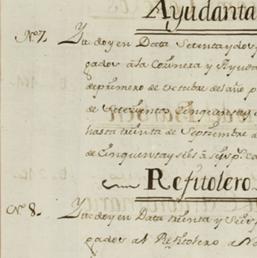 Ayudanta
N.º 7. Ya doy en Data Setenta y dos
gados à la Covnera y Ayuda
de primero de octubre del año p
de setecientos Cinquenta y
hasta treinta de Septiembre d
de Cinquenta y seis à
Refitolero
N.º 8. Ya doy en Data treinta y Seis
gados al Refitolero